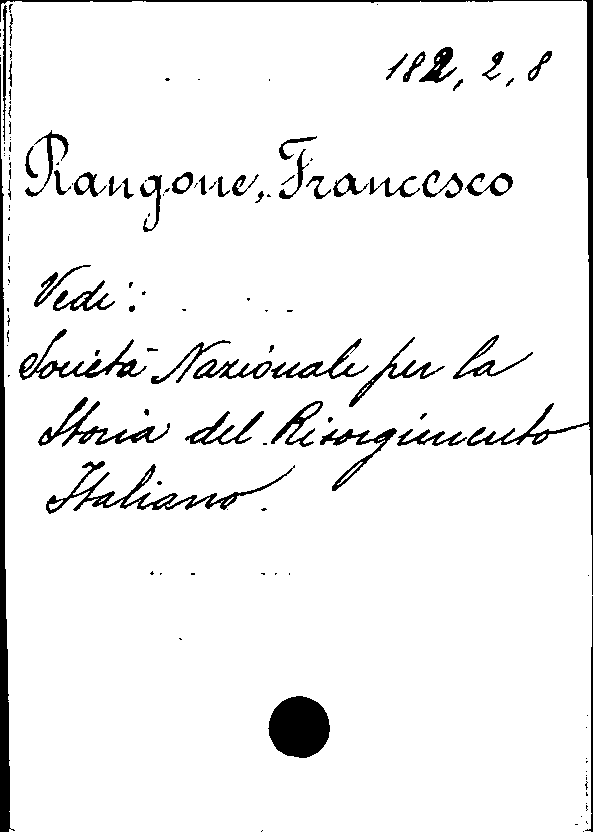 182, 2, 8
Rangone, Francesco
Vedi:
Società Nazionale per la
Storia del Risorgimento
Italiano.